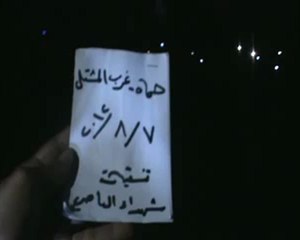 حماه غرب المشتل
٢٠١٢/٨/٧
تنسيقية
شهداء العاصي